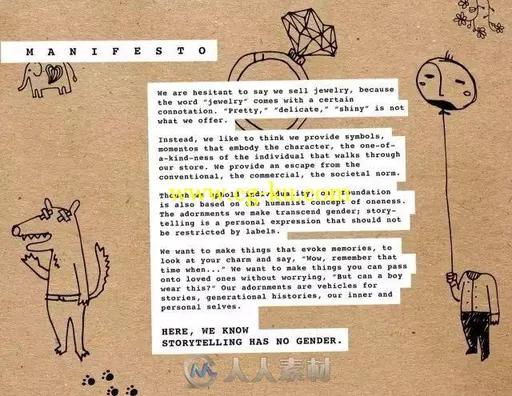 MANIFESTO
We are hesitant to say we sell jewelry, because
the word "jewelry" comes with a certain
connotation. "Pretty," "delicate," "shiny" is not
what we offer.
Instead, we like to think we provide symbols,
momentos that embody the character, the one-of-
a-kind-ness of the individual that walks through
our store. We provide an escape from the
conventional, the commercial, the societal norm.
Though we uphold individuality, our foundation
is also based on the humanist concept of oneness.
The adornments we make transcend gender; story-
telling is a personal expression that should not
be restricted by labels.
We want to make things that evoke memories, to
look at your charm and say, "Wow, remember that
time when..." We want to make things you can pass
onto loved ones without worrying, "But can a boy
wear this?" Our adornments are vehicles for
stories, generational histories, our inner and
personal selves.
HERE, WE KNOW
STORYTELLING HAS NO GENDER.
人人素材